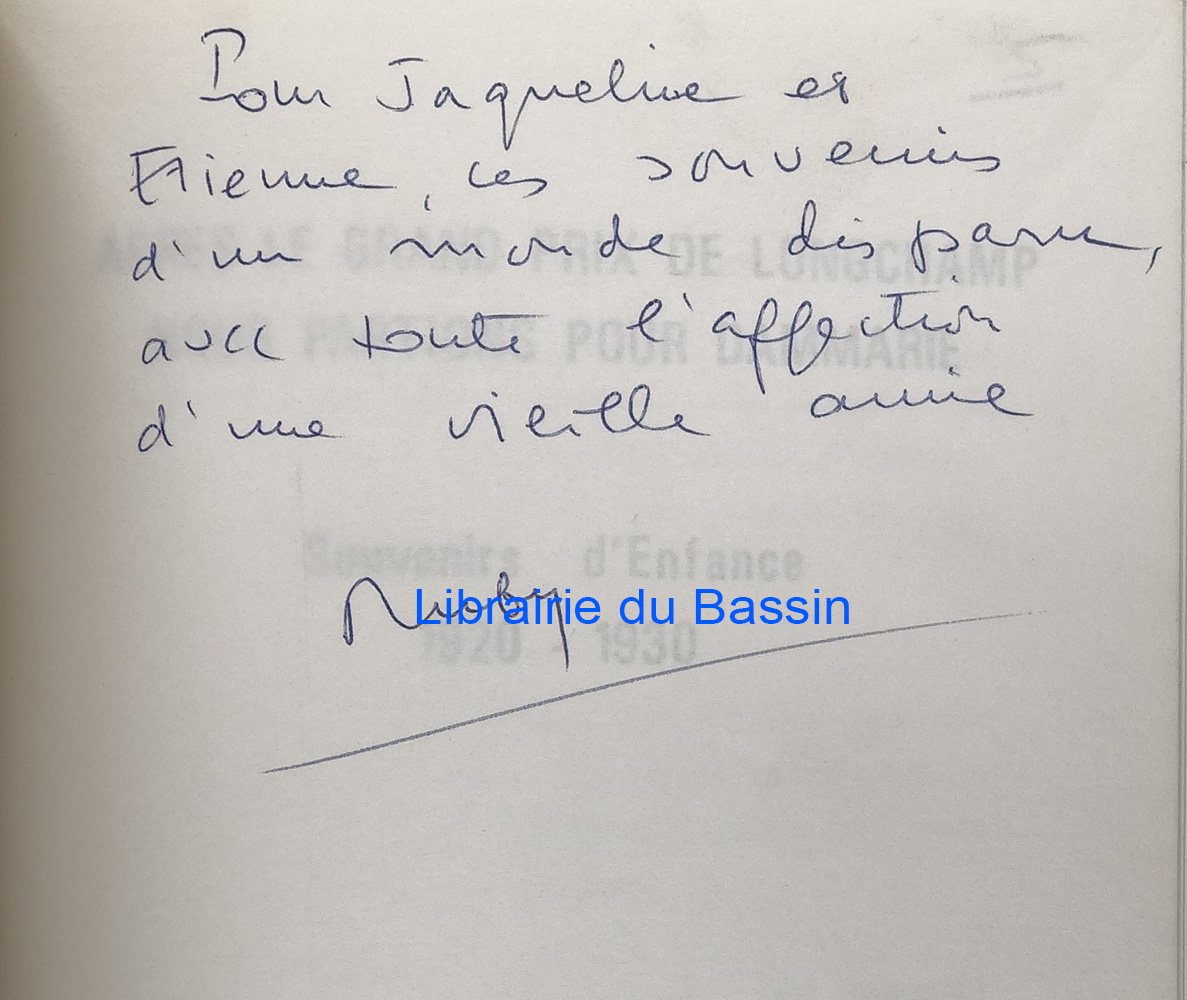 Pour Jaqueline et
Etienne, ces souvenirs
d'un monde disparu,
avec toute l'affection
d'une vieille amie
APRES LE GRAND PRIX DE LONGCHAMP
NOUS PARTIONS POUR DAMMARIE
Souvenirs d'Enfance
Librairie du Bassin
1920 - 1930